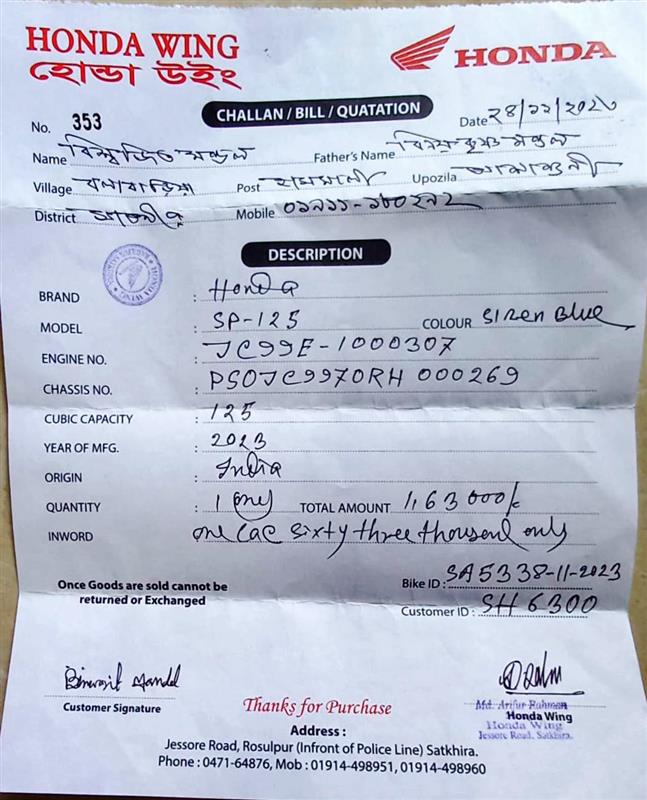 HONDA WING
হোন্ডা উইং
HONDA
CHALLAN / BILL / QUATATION
No. 353
Date ২৪/১২/২০২৩
Name বিশ্বজিত মন্ডল Father's Name মন্ডল
Village Post Upozila আশাশুনী
District সাতক্ষীরা Mobile
DESCRIPTION
BRAND : Honda
MODEL : SP-125 COLOUR Siren Blue
ENGINE NO. : JC99E-1000307
CHASSIS NO. : PS0JC9970RH 000269
CUBIC CAPACITY : 125
YEAR OF MFG. : 2023
ORIGIN : India
QUANTITY : 1 only TOTAL AMOUNT 1,63000/-
INWORD one lac sixty three thousand only
Once Goods are sold cannot be
returned or Exchanged
Bike ID : SA5338-11-2023
Customer ID : SH6300
Customer Signature
Thanks for Purchase
Md. Arifur Rahman
Honda Wing
Honda Wing
Jessore Road, Satkhira.
Address :
Jessore Road, Rosulpur (Infront of Police Line) Satkhira.
Phone : 0471-64876, Mob : 01914-498951, 01914-498960